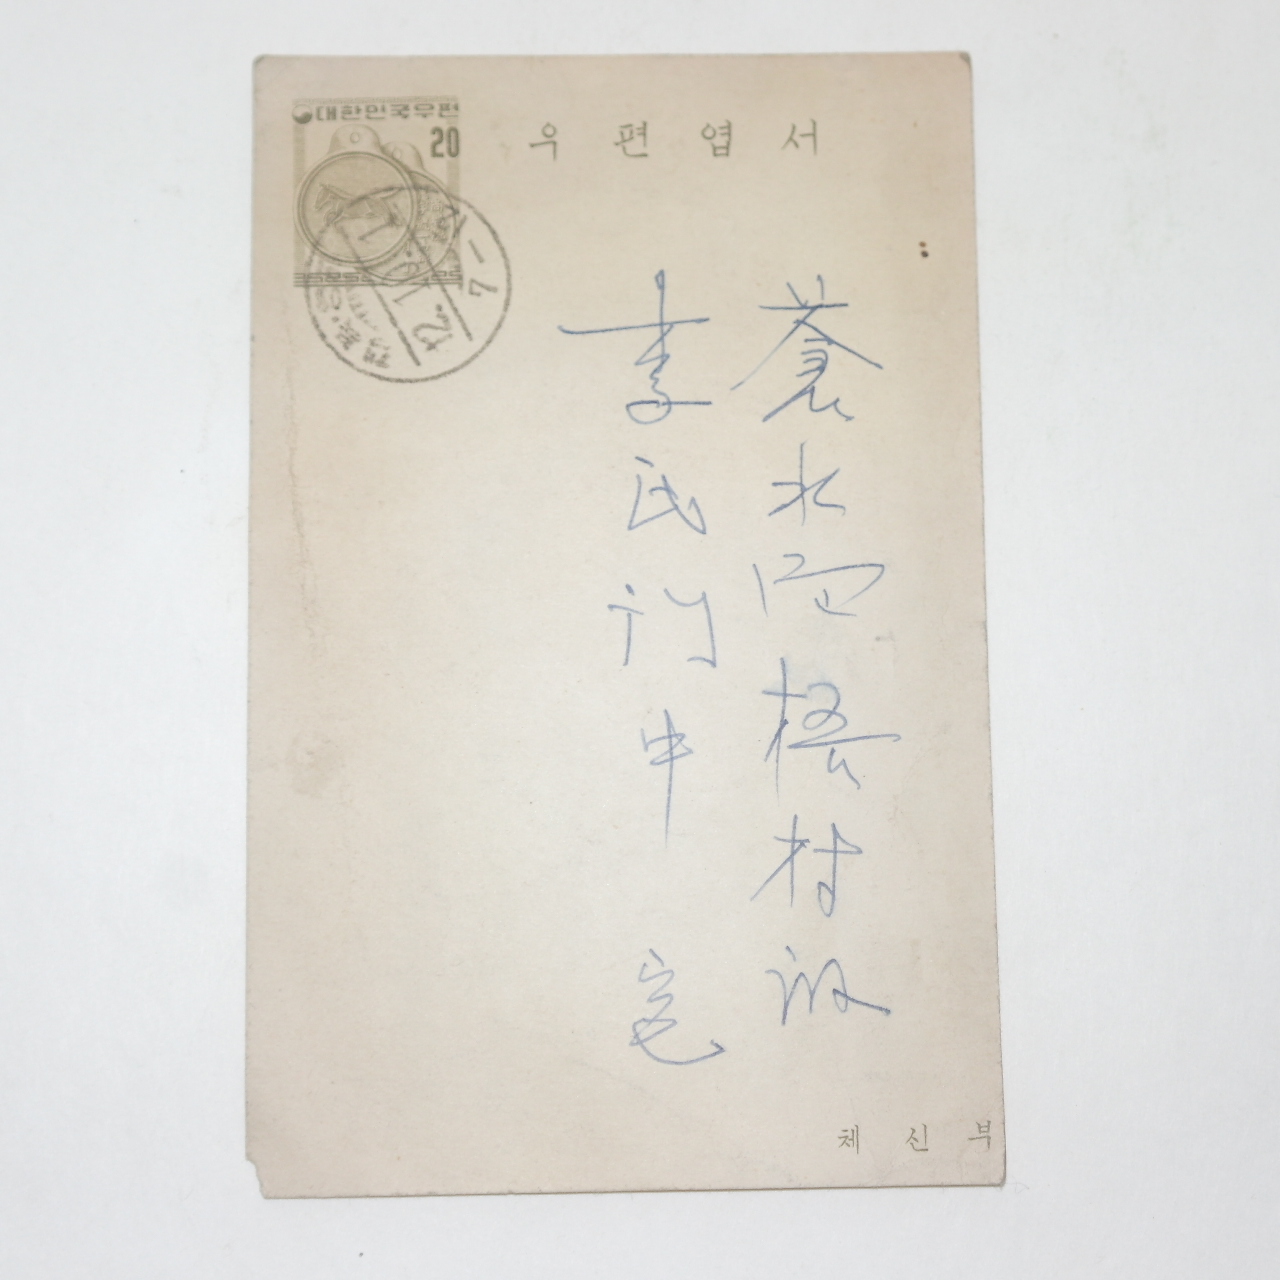 대한민국우편
20
우편엽서
蒼水面梧村
李氏門中 宅
체신부